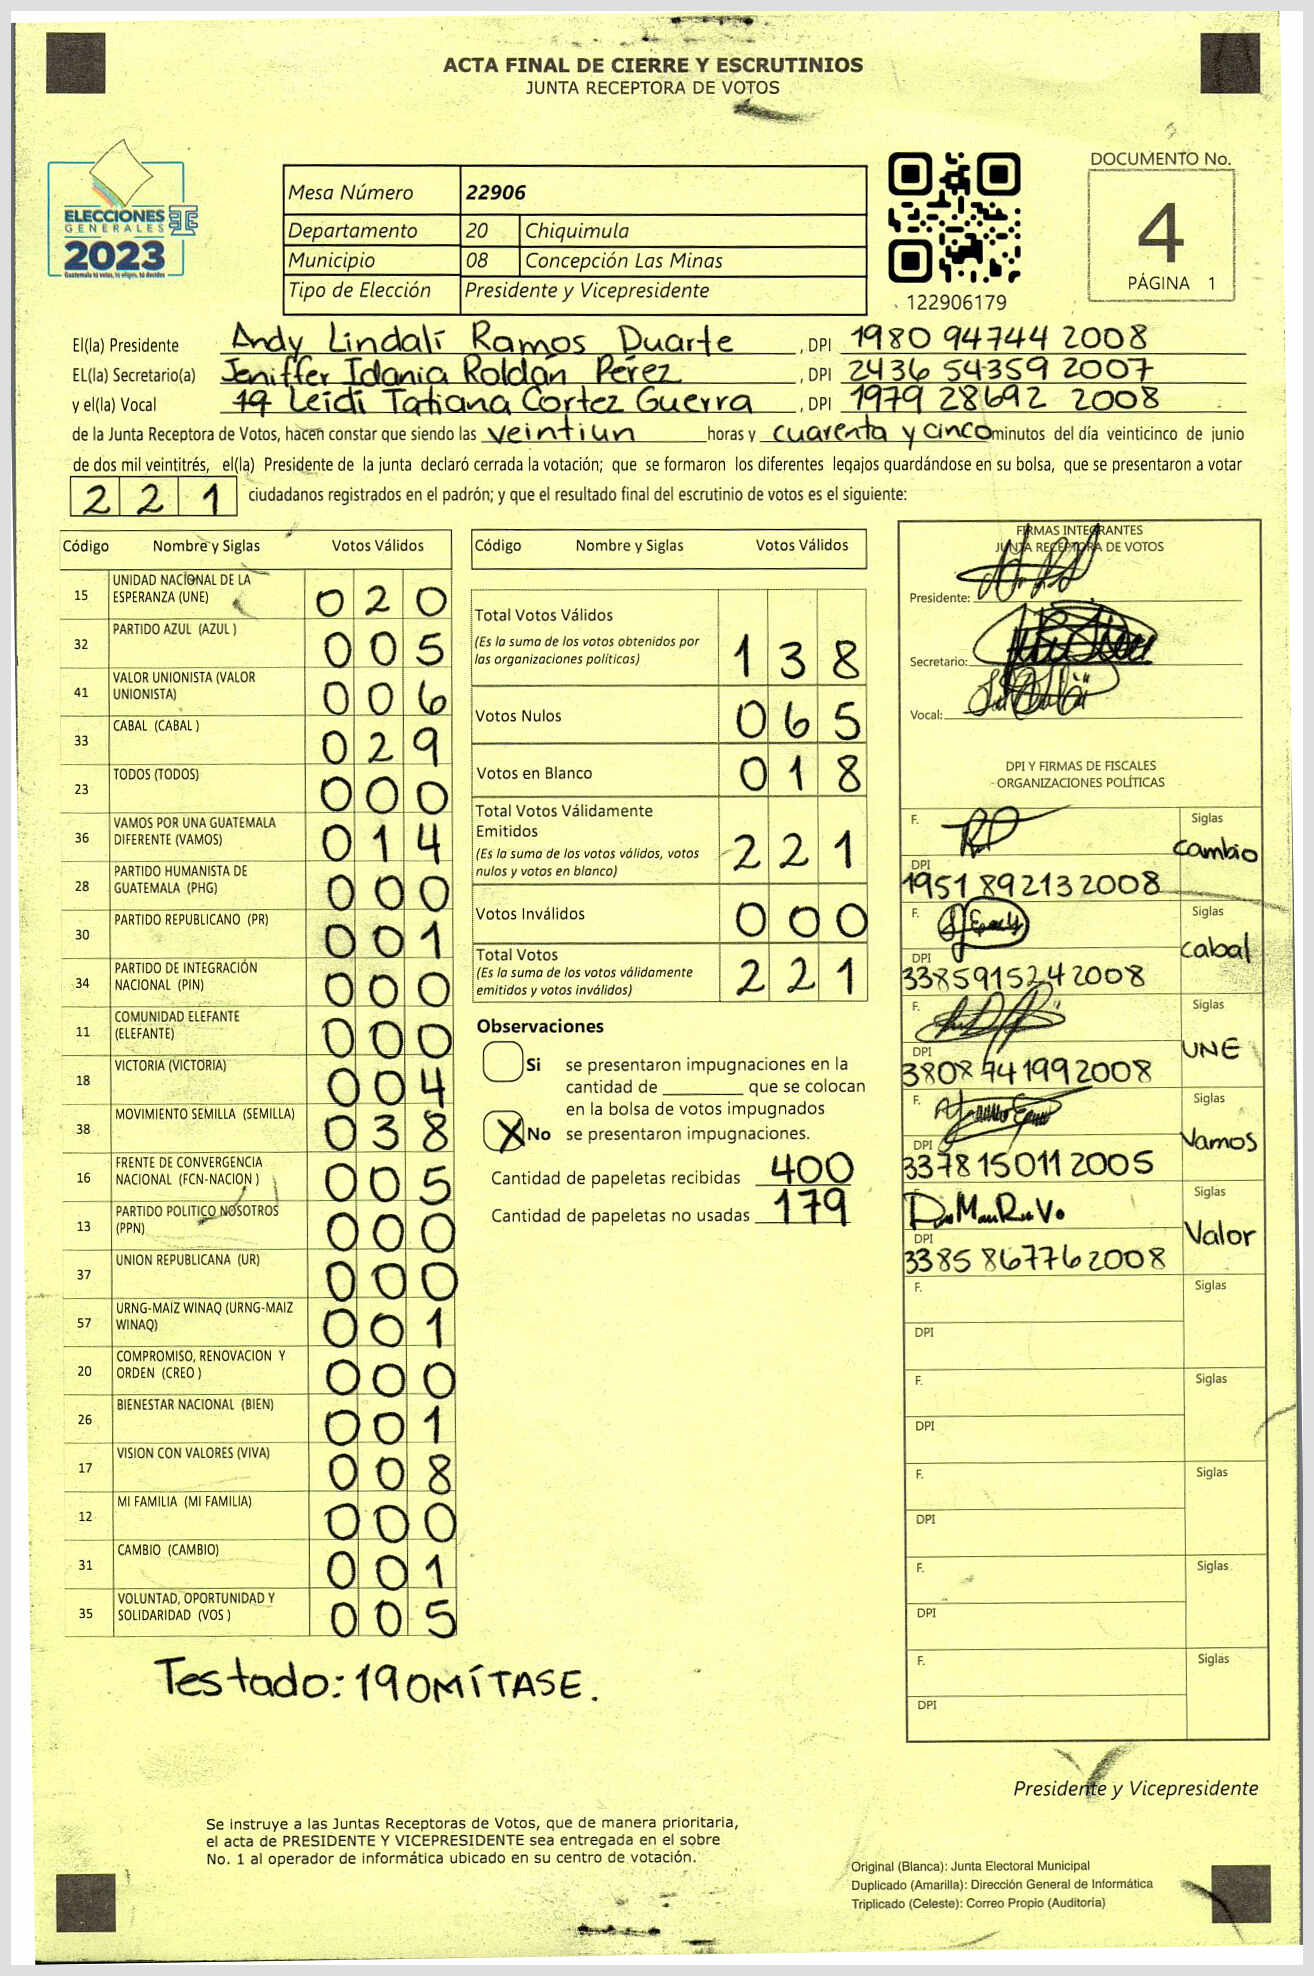 ACTA FINAL DE CIERRE Y ESCRUTINIOS
JUNTA RECEPTORA DE VOTOS
ELECCIONES
GENERALES
2023
Guatemala tú votas, tú eliges, tú decides
Mesa Número 22906
Departamento 20 Chiquimula
Municipio 08 Concepción Las Minas
Tipo de Elección Presidente y Vicepresidente
122906179
DOCUMENTO No.
4
PÁGINA 1
El(la) Presidente Andy Lindalí Ramos Duarte , DPI 1980 94744 2008
EL(la) Secretario(a) Jeniffer Idania Roldán Pérez , DPI 2436 54359 2007
y el(la) Vocal 19 Leidi Tatiana Cortez Guerra , DPI 1979 28692 2008
de la Junta Receptora de Votos, hacen constar que siendo las veintiun horas y cuarenta y cinco minutos del día veinticinco de junio
de dos mil veintitrés, el(la) Presidente de la junta declaró cerrada la votación; que se formaron los diferentes legajos quardándose en su bolsa, que se presentaron a votar
221 ciudadanos registrados en el padrón; y que el resultado final del escrutinio de votos es el siguiente:
Código Nombre y Siglas Votos Válidos
15 UNIDAD NACIONAL DE LA ESPERANZA (UNE) 020
32 PARTIDO AZUL (AZUL ) 005
41 VALOR UNIONISTA (VALOR UNIONISTA) 006
33 CABAL (CABAL ) 029
23 TODOS (TODOS) 000
36 VAMOS POR UNA GUATEMALA DIFERENTE (VAMOS) 014
28 PARTIDO HUMANISTA DE GUATEMALA (PHG) 000
30 PARTIDO REPUBLICANO (PR) 001
34 PARTIDO DE INTEGRACIÓN NACIONAL (PIN) 000
11 COMUNIDAD ELEFANTE (ELEFANTE) 000
18 VICTORIA (VICTORIA) 004
38 MOVIMIENTO SEMILLA (SEMILLA) 038
16 FRENTE DE CONVERGENCIA NACIONAL (FCN-NACION ) 005
13 PARTIDO POLITICO NOSOTROS (PPN) 000
37 UNION REPUBLICANA (UR) 000
57 URNG-MAIZ WINAQ (URNG-MAIZ WINAQ) 001
20 COMPROMISO, RENOVACION Y ORDEN (CREO ) 000
26 BIENESTAR NACIONAL (BIEN) 001
17 VISION CON VALORES (VIVA) 008
12 MI FAMILIA (MI FAMILIA) 000
31 CAMBIO (CAMBIO) 001
35 VOLUNTAD, OPORTUNIDAD Y SOLIDARIDAD (VOS ) 005
Testado: 19 OMÍTASE.
Código Nombre y Siglas Votos Válidos
Total Votos Válidos 138
(Es la suma de los votos obtenidos por
las organizaciones políticas)
Votos Nulos 065
Votos en Blanco 018
Total Votos Válidamente
Emitidos 221
(Es la suma de los votos válidos, votos
nulos y votos en blanco)
Votos Inválidos 000
Total Votos 221
(Es la suma de los votos válidamente
emitidos y votos inválidos)
Observaciones
Si se presentaron impugnaciones en la
cantidad de ________ que se colocan
en la bolsa de votos impugnados
X No se presentaron impugnaciones.
Cantidad de papeletas recibidas 400
Cantidad de papeletas no usadas 179
FIRMAS INTEGRANTES
JUNTA RECEPTORA DE VOTOS
Presidente:
Secretario:
Vocal:
DPI Y FIRMAS DE FISCALES
ORGANIZACIONES POLÍTICAS
F. Siglas
cambio
DPI
1951 89213 2008
F. Siglas
cabal
DPI
3385915242008
F. Siglas
UNE
DPI
3808 74199 2008
F. Siglas
Vamos
DPI
3378150112005
Siglas
Valor
DPI
3385 86776 2008
F. Siglas
DPI
F. Siglas
DPI
F. Siglas
DPI
F. Siglas
DPI
F. Siglas
DPI
Presidente y Vicepresidente
Se instruye a las Juntas Receptoras de Votos, que de manera prioritaria,
el acta de PRESIDENTE Y VICEPRESIDENTE sea entregada en el sobre
No. 1 al operador de informática ubicado en su centro de votación.
Original (Blanca): Junta Electoral Municipal
Duplicado (Amarilla): Dirección General de Informática
Triplicado (Celeste): Correo Propio (Auditoría)